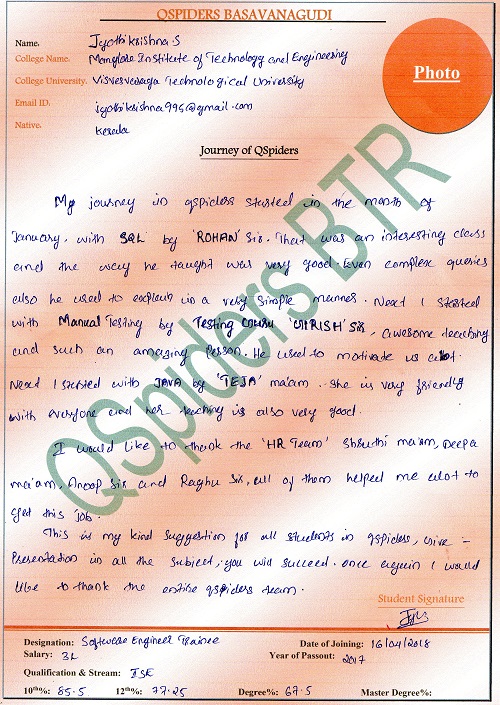 QSPIDERS BASAVANAGUDI
Name. Jyothikrishna.S
College Name. Manglore Institute of Technology and Engineering
College University. Visvesvaraya Technological University
Email ID. jyothikrishna995@gmail.com
Native. Kerala
Photo
Journey of QSpiders
My journey in qspiders started in the month of
January, with SQL by 'ROHAN' Sir. That was an interesting class
and the way he taught was very good. Even complex queries
also he used to explain in a very simple manner. Next I started
with Manual Testing by Testing Guru 'GIRISH' Sir, awesome teaching
and such an amazing Person. He used to motivate us alot.
Next I started with JAVA by 'TEJA' ma'am. She is very friendly
with everyone and her teaching is also very good.
I would like to thank the 'HR Team' Shruthi ma'am, Deepa
ma'am, Anoop Sir and Raghu Sir, all of them helped me alot to
get this job.
This is my kind suggestion for all students in qspiders, Give -
Presentation in all the subject, you will succeed. once again I would
like to thank the entire qspiders team.
QSpiders BTR
Student Signature
Designation: Software Engineer Trainee
Date of Joining: 16/04/2018
Salary: 3L
Year of Passout: 2017
Qualification & Stream: ISE
10th%: 85.5 12th%: 77.25 Degree%: 67.5 Master Degree%: